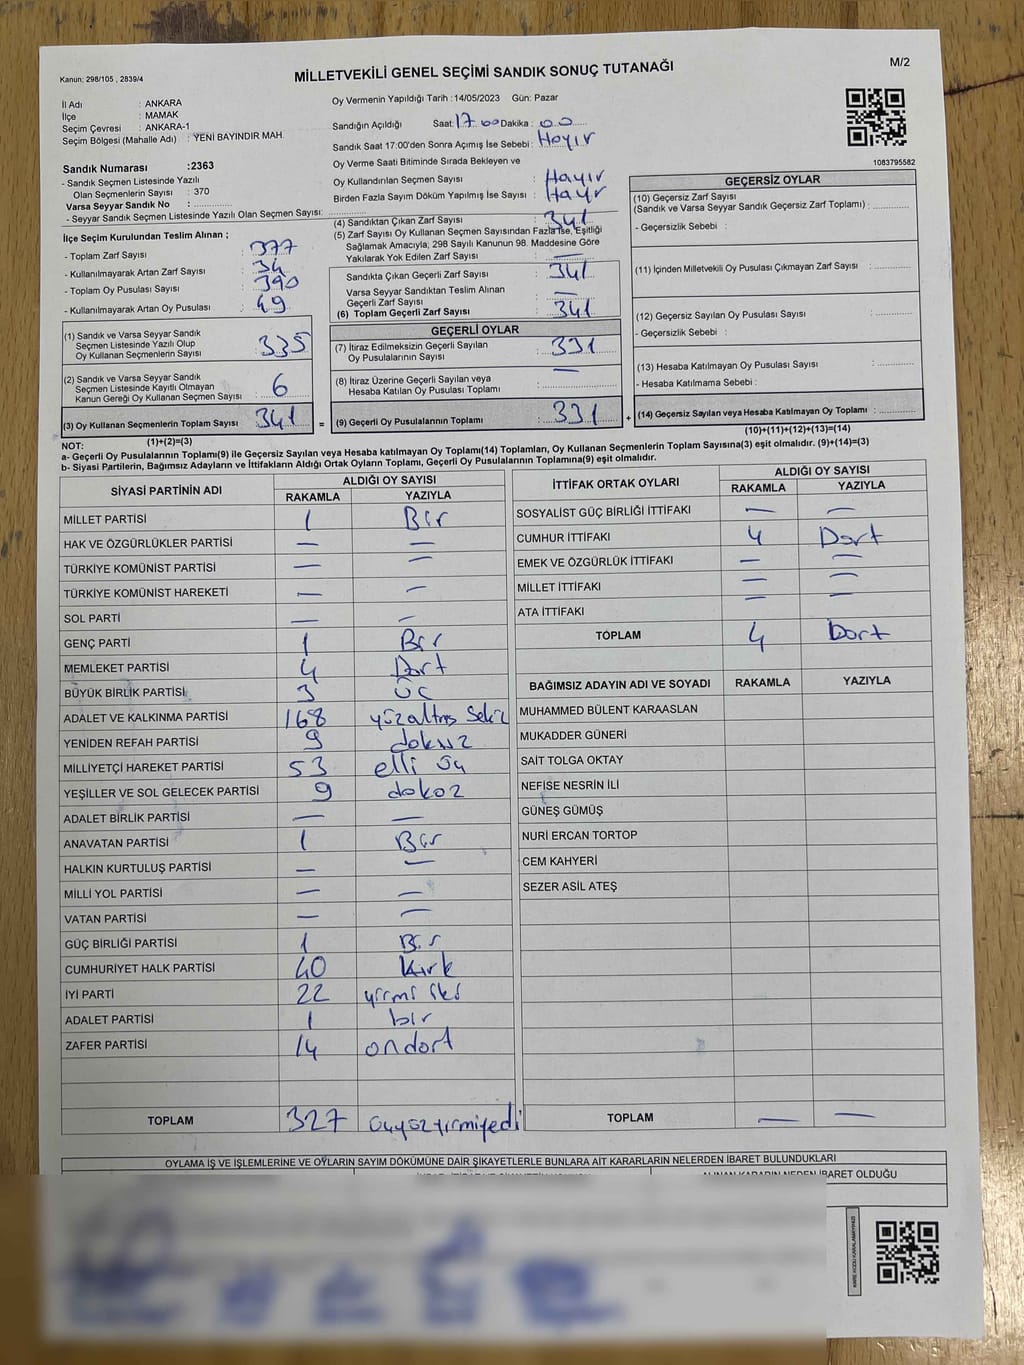 Kanun: 298/105 , 2839/4
MİLLETVEKİLİ GENEL SEÇİMİ SANDIK SONUÇ TUTANAĞI
M/2
İl Adı : ANKARA
İlçe : MAMAK
Seçim Çevresi : ANKARA-1
Seçim Bölgesi (Mahalle Adı) : YENİ BAYINDIR MAH.
Sandık Numarası :2363
- Sandık Seçmen Listesinde Yazılı
Olan Seçmenlerin Sayısı : 370
Varsa Seyyar Sandık No :
- Seyyar Sandık Seçmen Listesinde Yazılı Olan Seçmen Sayısı:
Oy Vermenin Yapıldığı Tarih : 14/05/2023 Gün: Pazar
Sandığın Açıldığı Saat: 17.00 Dakika : 00
Sandık Saat 17:00'den Sonra Açımış İse Sebebi : Hayır
Oy Verme Saati Bitiminde Sırada Bekleyen ve
Oy Kullandırılan Seçmen Sayısı : Hayır
Birden Fazla Sayım Döküm Yapılmış İse Sayısı : Hayır
1083795582
İlçe Seçim Kurulundan Teslim Alınan ;
- Toplam Zarf Sayısı : 377
- Kullanılmayarak Artan Zarf Sayısı : 34
- Toplam Oy Pusulası Sayısı : 390
- Kullanılmayarak Artan Oy Pusulası : 49
(1) Sandık ve Varsa Seyyar Sandık
Seçmen Listesinde Yazılı Olup
Oy Kullanan Seçmenlerin Sayısı : 335
(2) Sandık ve Varsa Seyyar Sandık
Seçmen Listesinde Kayıtlı Olmayan
Kanun Gereği Oy Kullanan Seçmen Sayısı : 6
(3) Oy Kullanan Seçmenlerin Toplam Sayısı : 341
(1)+(2)=(3)
(4) Sandıktan Çıkan Zarf Sayısı : 341
(5) Zarf Sayısı Oy Kullanan Seçmen Sayısından Fazla İse, Eşitliği
Sağlamak Amacıyla, 298 Sayılı Kanunun 98. Maddesine Göre
Yakılarak Yok Edilen Zarf Sayısı : —
Sandıkta Çıkan Geçerli Zarf Sayısı : 341
Varsa Seyyar Sandıktan Teslim Alınan
Geçerli Zarf Sayısı : —
(6) Toplam Geçerli Zarf Sayısı : 341
GEÇERLİ OYLAR
(7) İtiraz Edilmeksizin Geçerli Sayılan
Oy Pusulalarının Sayısı : 331
(8) İtiraz Üzerine Geçerli Sayılan veya
Hesaba Katılan Oy Pusulası Toplamı : —
= (9) Geçerli Oy Pusulalarının Toplamı : 331 +
GEÇERSİZ OYLAR
(10) Geçersiz Zarf Sayısı
(Sandık ve Varsa Seyyar Sandık Geçersiz Zarf Toplamı) :
- Geçersizlik Sebebi :
(11) İçinden Milletvekili Oy Pusulası Çıkmayan Zarf Sayısı :
(12) Geçersiz Sayılan Oy Pusulası Sayısı :
- Geçersizlik Sebebi :
(13) Hesaba Katılmayan Oy Pusulası Sayısı :
- Hesaba Katılmama Sebebi :
(14) Geçersiz Sayılan veya Hesaba Katılmayan Oy Toplamı :
(10)+(11)+(12)+(13)=(14)
NOT:
a- Geçerli Oy Pusulalarının Toplamı(9) ile Geçersiz Sayılan veya Hesaba Katılmayan Oy Toplamı(14) Toplamları, Oy Kullanan Seçmenlerin Toplam Sayısına(3) eşit olmalıdır. (9)+(14)=(3)
b- Siyasi Partilerin, Bağımsız Adayların ve İttifakların Aldığı Ortak Oyların Toplamı, Geçerli Oy Pusulalarının Toplamına(9) eşit olmalıdır.
SİYASİ PARTİNİN ADI ALDIĞI OY SAYISI
RAKAMLA YAZIYLA
MİLLET PARTİSİ 1 Bir
HAK VE ÖZGÜRLÜKLER PARTİSİ — —
TÜRKİYE KOMÜNİST PARTİSİ — —
TÜRKİYE KOMÜNİST HAREKETİ — —
SOL PARTİ — —
GENÇ PARTİ 1 Bir
MEMLEKET PARTİSİ 4 Dört
BÜYÜK BİRLİK PARTİSİ 3 Üç
ADALET VE KALKINMA PARTİSİ 168 yüzaltmış Sekiz
YENİDEN REFAH PARTİSİ 9 dokuz
MİLLİYETÇİ HAREKET PARTİSİ 53 elli üç
YEŞİLLER VE SOL GELECEK PARTİSİ 9 dokoz
ADALET BİRLİK PARTİSİ — —
ANAVATAN PARTİSİ 1 Bir
HALKIN KURTULUŞ PARTİSİ — —
MİLLİ YOL PARTİSİ — —
VATAN PARTİSİ — —
GÜÇ BİRLİĞİ PARTİSİ 1 Bir
CUMHURİYET HALK PARTİSİ 40 Kırk
İYİ PARTİ 22 yirmi iki
ADALET PARTİSİ 1 bir
ZAFER PARTİSİ 14 ondört
TOPLAM 327 üçyüzyirmiyedi
İTTİFAK ORTAK OYLARI ALDIĞI OY SAYISI
RAKAMLA YAZIYLA
SOSYALİST GÜÇ BİRLİĞİ İTTİFAKI — —
CUMHUR İTTİFAKI 4 Dört
EMEK VE ÖZGÜRLÜK İTTİFAKI — —
MİLLET İTTİFAKI — —
ATA İTTİFAKI — —
TOPLAM 4 Dört
BAĞIMSIZ ADAYIN ADI VE SOYADI RAKAMLA YAZIYLA
MUHAMMED BÜLENT KARAASLAN
MUKADDER GÜNERİ
SAİT TOLGA OKTAY
NEFİSE NESRİN İLİ
GÜNEŞ GÜMÜŞ
NURİ ERCAN TORTOP
CEM KAHYERİ
SEZER ASİL ATEŞ
TOPLAM — —
OYLAMA İŞ VE İŞLEMLERİNE VE OYLARIN SAYIM DÖKÜMÜNE DAİR ŞİKAYETLERLE BUNLARA AİT KARARLARIN NELERDEN İBARET BULUNDUKLARI
ALINAN KARARIN NEDEN İBARET OLDUĞU
KARE KODU KARALAMAYINIZ!